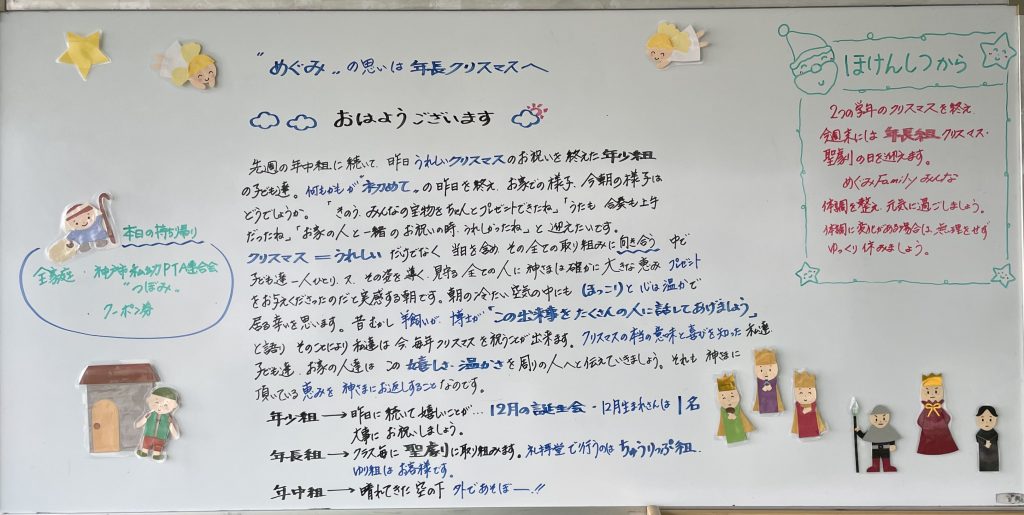 "めぐみ"の思いは 年長クリスマスへ
おはようございます
先週の年中組に続いて、昨日うれしいクリスマスのお祝いを終えた年少組
の子ども達。何もかもが"初めて"の昨日を終え、お家での様子、今朝の様子は
どうでしょうか。「きのう、みんなの宝物をちゃんとプレゼントできたね」「うたも 合奏も上手
だったね」「お家の人と一緒のお祝いの時、うれしかったね」と迎えたいです。
クリスマス＝うれしい だけでなく 当日を含め、その全ての取り組みに向き合う 中で
子ども達一人ひとり、又、その姿を導く、見守る全ての人に神さまは確かに大きな恵み プレゼント
をお与えくださったのだと実感する朝です。朝の冷たい空気の中にも ほっこりと心は温かで
居る幸いを思います。昔むかし 羊飼いが、博士が「この出来事をたくさんの人に話してあげましょう」
と語り そのことにより私達は今、毎年クリスマスを祝うことが出来ます。クリスマスの本当の意味と喜びを知った私達、
子ども達、お家の人達は この 嬉しさ・温かさを周りの人へと伝えていきましょう。それも 神さまに
頂いている恵みを神さまにお返しすることなのです。
年少組 → 昨日に続いて嬉しいことが… 12月の誕生会・12月生まれさんは 1名
大事に お祝いしましょう。
年長組 → クラス毎に 聖劇に取り組みます。礼拝堂で行うのは ちゅうりっぷ組、
ゆり組は お客様です。
年中組 → 晴れてきた空の下 外であそぼー!!
本日の持ち帰り
全家庭・神戸市私幼PTA連合会
"つぼみ"
クーポン券
ほけんしつから
2つの学年のクリスマスを終え、
今週末には 年長組クリスマス・
聖劇の日を迎えます。
めぐみFamily みんな
体調を整え、元気に過ごしましょう。
体調に変化がある場合は、無理をせず
ゆっくり休みましょう。